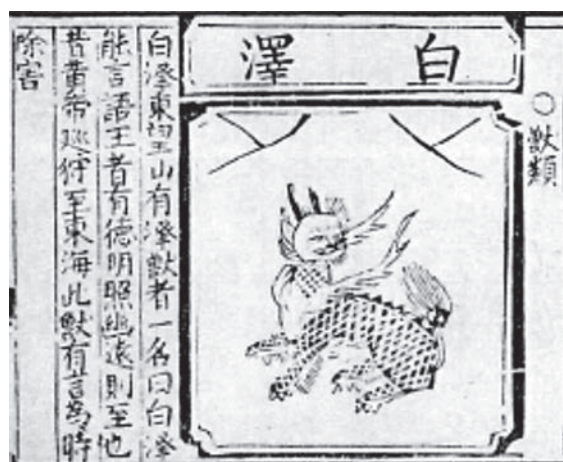 ○獸類
白澤
白澤東望山有澤獸者一名曰白澤
能言語王者有德明照幽遠則至也
昔黃帝巡狩至東海此獸有言為時
除害